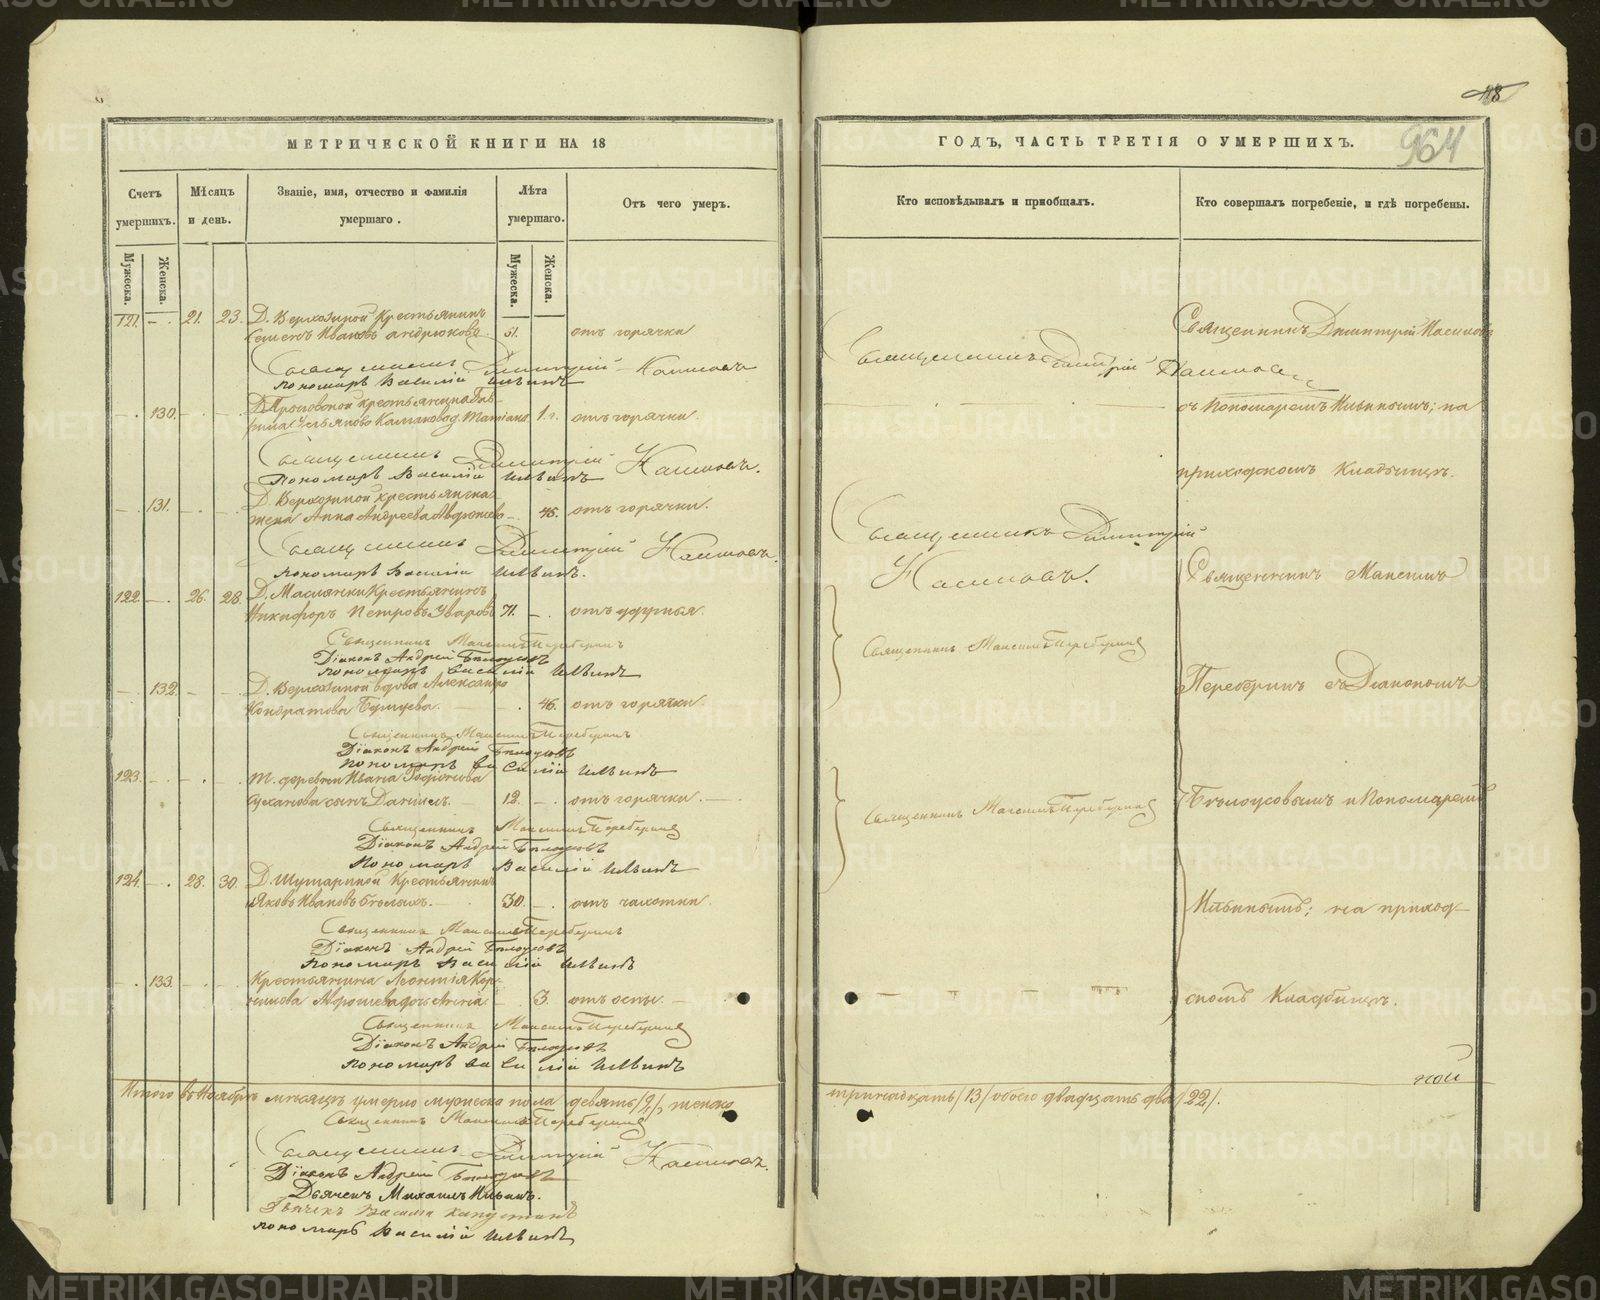 118
964
МЕТРИЧЕСКОЙ КНИГИ НА 18
Счетъ умершихъ.
Мѣсяцъ и день.
Званіе, имя, отчество и фамилія умершаго.
Лѣта умершаго.
Отъ чего умеръ.
Мужеска.
Женска.
Мужеска.
Женска.
121. 21. 23. Д. Верхозиной Крестьянинъ
Семенъ Ивановъ Андрюковъ 51. отъ горячки
Священникъ Димитрій Кашиновъ
Пономарь Василій Ильинъ
130. крестьянина
1. отъ горячки.
Священникъ Димитрій
Пономарь Василій Ильинъ
131. Д. Верхозиной крестьянина
жена Анна Андреева 45. отъ горячки.
Священникъ Димитрій
Пономарь Василій Ильинъ.
122. 26. 28. Д. Маслянки Крестьянинъ
Никифоръ Петровъ Уваровъ 71. отъ удушья.
Священникъ Максимъ Переберинъ
Діаконъ Андрей Бѣлоусовъ
Пономарь Василій Ильинъ
132. Д. Верхозиной вдова Александра
Кондратова 46. отъ горячки.
Священникъ Максимъ Переберинъ
Діаконъ Андрей Бѣлоусовъ
Пономарь Василій Ильинъ
123. Т. деревни Ивана Родіонова
сынъ Даніилъ. 12. отъ горячки.
Священникъ Максимъ Переберинъ
Діаконъ Андрей Бѣлоусовъ
Пономарь Василій Ильинъ
124. 28. 30. Д. Шутариной Крестьянинъ
Яковъ Ивановъ Бѣлыхъ. 30. отъ чахотки
Священникъ Максимъ Переберинъ
Діаконъ Андрей Бѣлоусовъ
Пономарь Василій Ильинъ
133. Крестьянина Леонтія Кор-
нилова дочь 3. отъ оспы.
Священникъ Максимъ Переберинъ
Діаконъ Андрей Бѣлоусовъ
Пономарь Василій Ильинъ
Итого въ Ноябрѣ мѣсяцѣ умерло мужеска пола девять /9/, женска
Священникъ Максимъ Переберинъ
Священникъ Димитрій
Діаконъ Андрей Бѣлоусовъ
Дьячекъ Михаилъ Ильинъ.
Дьячекъ Василій Капустинъ
Пономарь Василій Ильинъ
ГОДЪ, ЧАСТЬ ТРЕТІЯ О УМЕРШИХЪ.
Кто исповѣдывалъ и пріобщалъ.
Кто совершалъ погребеніе, и гдѣ погребены.
Священникъ Димитрій
Священникъ Димитрій
съ Пономаремъ Ильинымъ; на
приходскомъ Кладбищѣ.
Священникъ Димитрій
Священникъ Максимъ
Священникъ Максимъ Переберинъ
Переберинъ съ Діакономъ
Священникъ Максимъ Переберинъ
Бѣлоусовымъ и Пономаремъ
Ильинымъ; на приход-
скомъ Кладбищѣ.
ной
тринадцать /13/ обоего двадцать два /22/.
METRIKI.GASO-URAL.RU